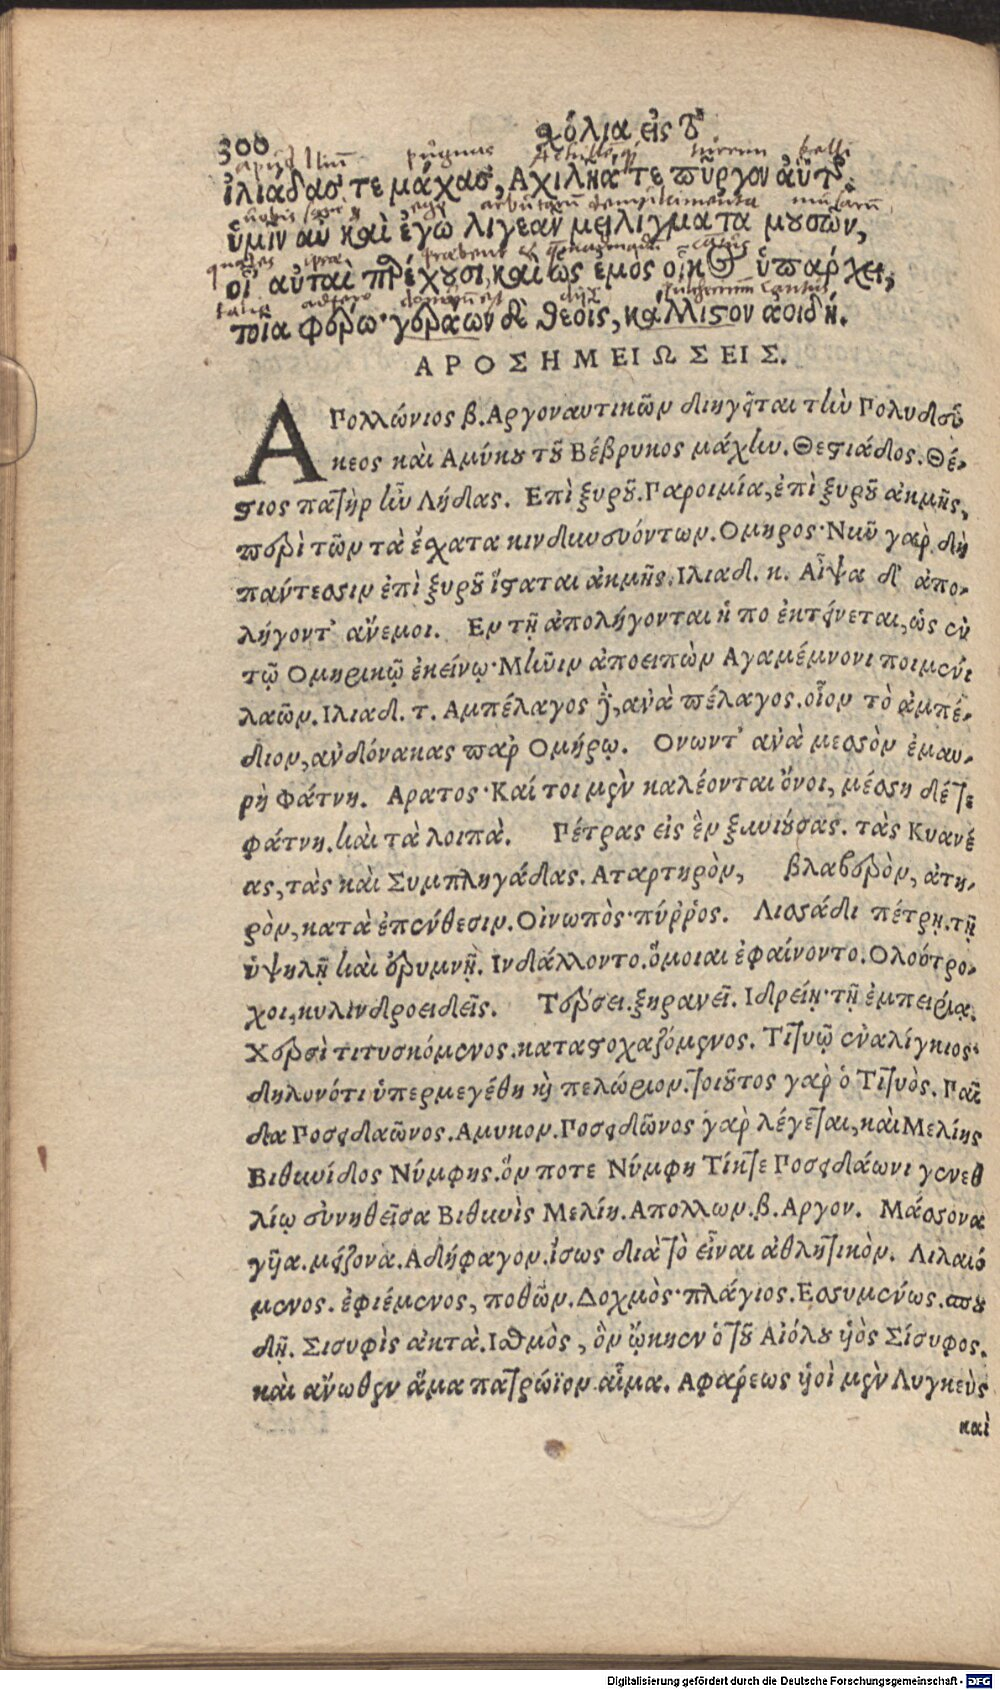 300 χόλια εἰς τ̀
ἰλιάδασ τε μάχασ, Ἀχιλῆά τε πύργον ἀϋτῆσ.
ὑμῖν αὖ καὶ ἐγὼ λιγεῶν μειλίγματα μουσῶν,
οἷ' αὐταὶ παρέχουσι, καὶ ὡς ἐμὸς οἶκος ὑπάρχει,
τοῖα φέρω· γεράων δὲ θεοῖς, κάλλιστον ἀοιδή.
ΑΡΟΣΗΜΕΙΩΣΕΙΣ.
ΑΓολλώνιος β. Αργοναυτικῶν διηγεῖται τὴν Γολυδεύ
κεος καὶ Αμύκου τοῦ Βέβρυκος μάχην. Θεστιάδος. Θέ-
στιος πατὴρ ἦν Λήδας. Επὶ ξυροῦ. Γαροιμία, ἐπὶ ξυροῦ ἀκμῆς,
περὶ τῶν τὰ ἔσχατα κινδυνευόντων. Ομηρος· Νῦν γὰρ δὴ
πάντεσσιν ἐπὶ ξυροῦ ἵσταται ἀκμῆς. Ιλιαδ. κ. Αἶψα δ' ἀπο-
λήγοντ' ἄνεμοι. Εν τῇ ἀπολήγονται ἡ πο ἐκτείνεται, ὡς ἐν
τῷ Ομηρικῷ ἐκείνῳ· Μῆνιν ἀποειπὼν Αγαμέμνονι ποιμένι
λαῶν. Ιλιαδ. τ. Αμπέλαγος ἤ, ἀνὰ πέλαγος. οἷον τὸ ἀμπέ-
διον, ἀνδόνακας παρ Ομήρῳ. Ονωντ' ἀνὰ μεσσὸν ἐμαυ-
ρὴ Φάτνη. Αρατος· Καί τοι μὲν καλέονται ὄνοι, μέσση δέ τε
φάτνη. καὶ τὰ λοιπὰ. Γέτρας εἰς ἓν ξωιούσας. τὰς Κυανέ
ας, τὰς καὶ Συμπληγάδας. Αταρτηρὸν, βλαβερὸν, ἀτη-
ρὸν, κατὰ ἐπένθεσιν. Οἰνωπὸς· πύῤῥος. Λισσάδι πέτρῃ. τῇ
ὑψηλῇ καὶ ἐρυμνῇ. Ινδάλλοντο. ὅμοιαι ἐφαίνοντο. Ολοότρο-
χοι, κυλινδροειδεῖς. Τέρσει. ξηρανεῖ. Ιδρείῃ· τῇ ἐμπειρίᾳ.
Χερσὶ τιτυσκόμενος. καταστοχαζόμενος. Τιτυῷ ἐναλίγκιος·
δηλονότι ὑπερμεγέθη καὶ πελώριον. τοιοῦτος γὰρ ὁ Τιτυὸς. Γαῖ
δα Γοσειδαῶνος. Αμυκον. Γοσειδῶνος γὰρ λέγεται, καὶ Μελίης
Βιθυνίδος Νύμφης. ὅν ποτε Νύμφη Τίκτε Γοσειδάωνι γενεθ
λίῳ συνηθεῖσα Βιθυνὶς Μελίη. Απολλων. β. Αργον. Μάσσονα
γῆα. μείζονα. Αδήφαγον. ἴσως διὰ τὸ εἶναι ἀθλητικὸν. Λιλαιό
μενος. ἐφιέμενος, ποθῶν. Δοχμὸς· πλάγιος. Εσσυμένως. σπου
δῇ. Σισυφὶς ἀκτὰ. Ισθμὸς, ὃν ᾤκησεν ὁ τοῦ Αἰόλου ὑὸς Σίσυφος.
καὶ ἄνωθεν ἅμα πατρώϊον αἷμα. Αφαρέως ὑοὶ μὲν Λυγκεὺς
καὶ
Digitalisierung gefördert durch die Deutsche Forschungsgemeinschaft - DFG